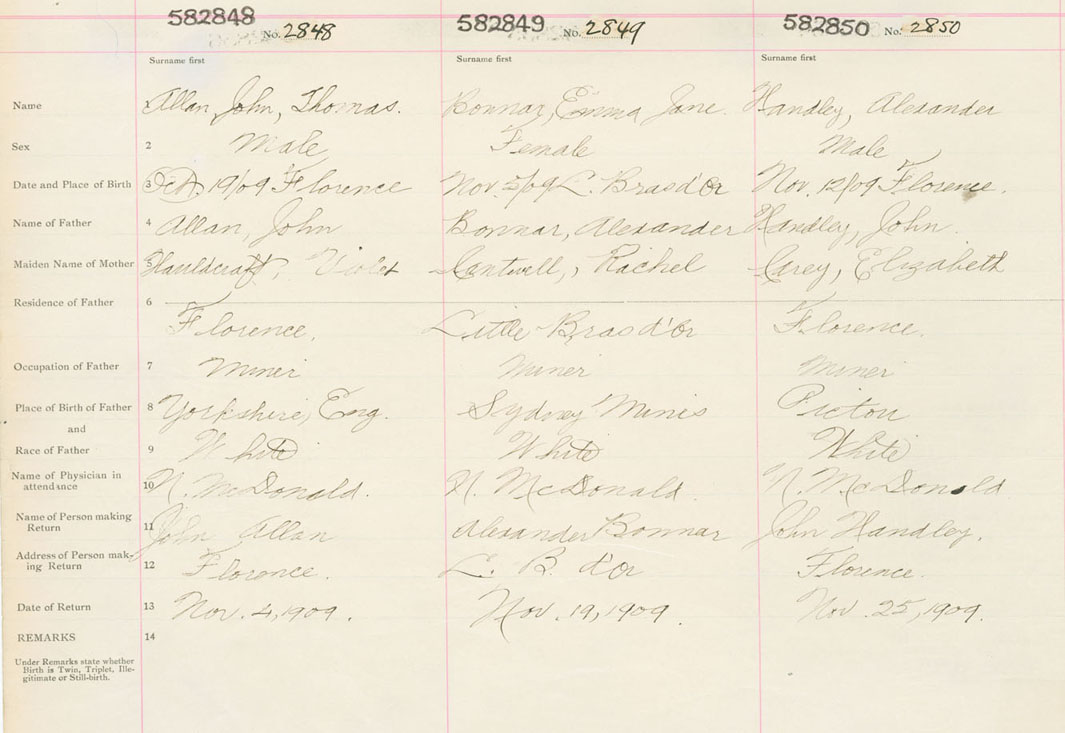 582848 No. 2848 582849 No. 2849 582850 No. 2850
Surname first Surname first Surname first
Name Allan, John, Thomas. Bonnar, Emma Jane. Handley, Alexander
Sex 2 Male Female Male
Date and Place of Birth 3 Oct. 19/09 Florence Nov /09 L. Bras d'Or Nov. 12/09 Florence.
Name of Father 4 Allan, John Bonnar, Alexander Handley, John.
Maiden Name of Mother 5 Violet Cantwell, Rachel Carey, Elizabeth
Residence of Father 6
Florence. Little Bras d'Or Florence.
Occupation of Father 7 Miner Miner Miner
Place of Birth of Father 8 Yorkshire, Eng. Sydney Mines Pictou
and
Race of Father 9 White White White
Name of Physician in
attendance 10 N. McDonald. N. McDonald. N. McDonald
Name of Person making
Return 11 John Allan Alexander Bonnar John Handley.
Address of Person mak-
ing Return 12 Florence. L. B. d'Or Florence.
Date of Return 13 Nov. 4, 1909. Nov. 19, 1909. Nov. 25, 1909.
REMARKS 14
Under Remarks state whether
Birth is Twin, Triplet, Ille-
gitimate or Still-birth.